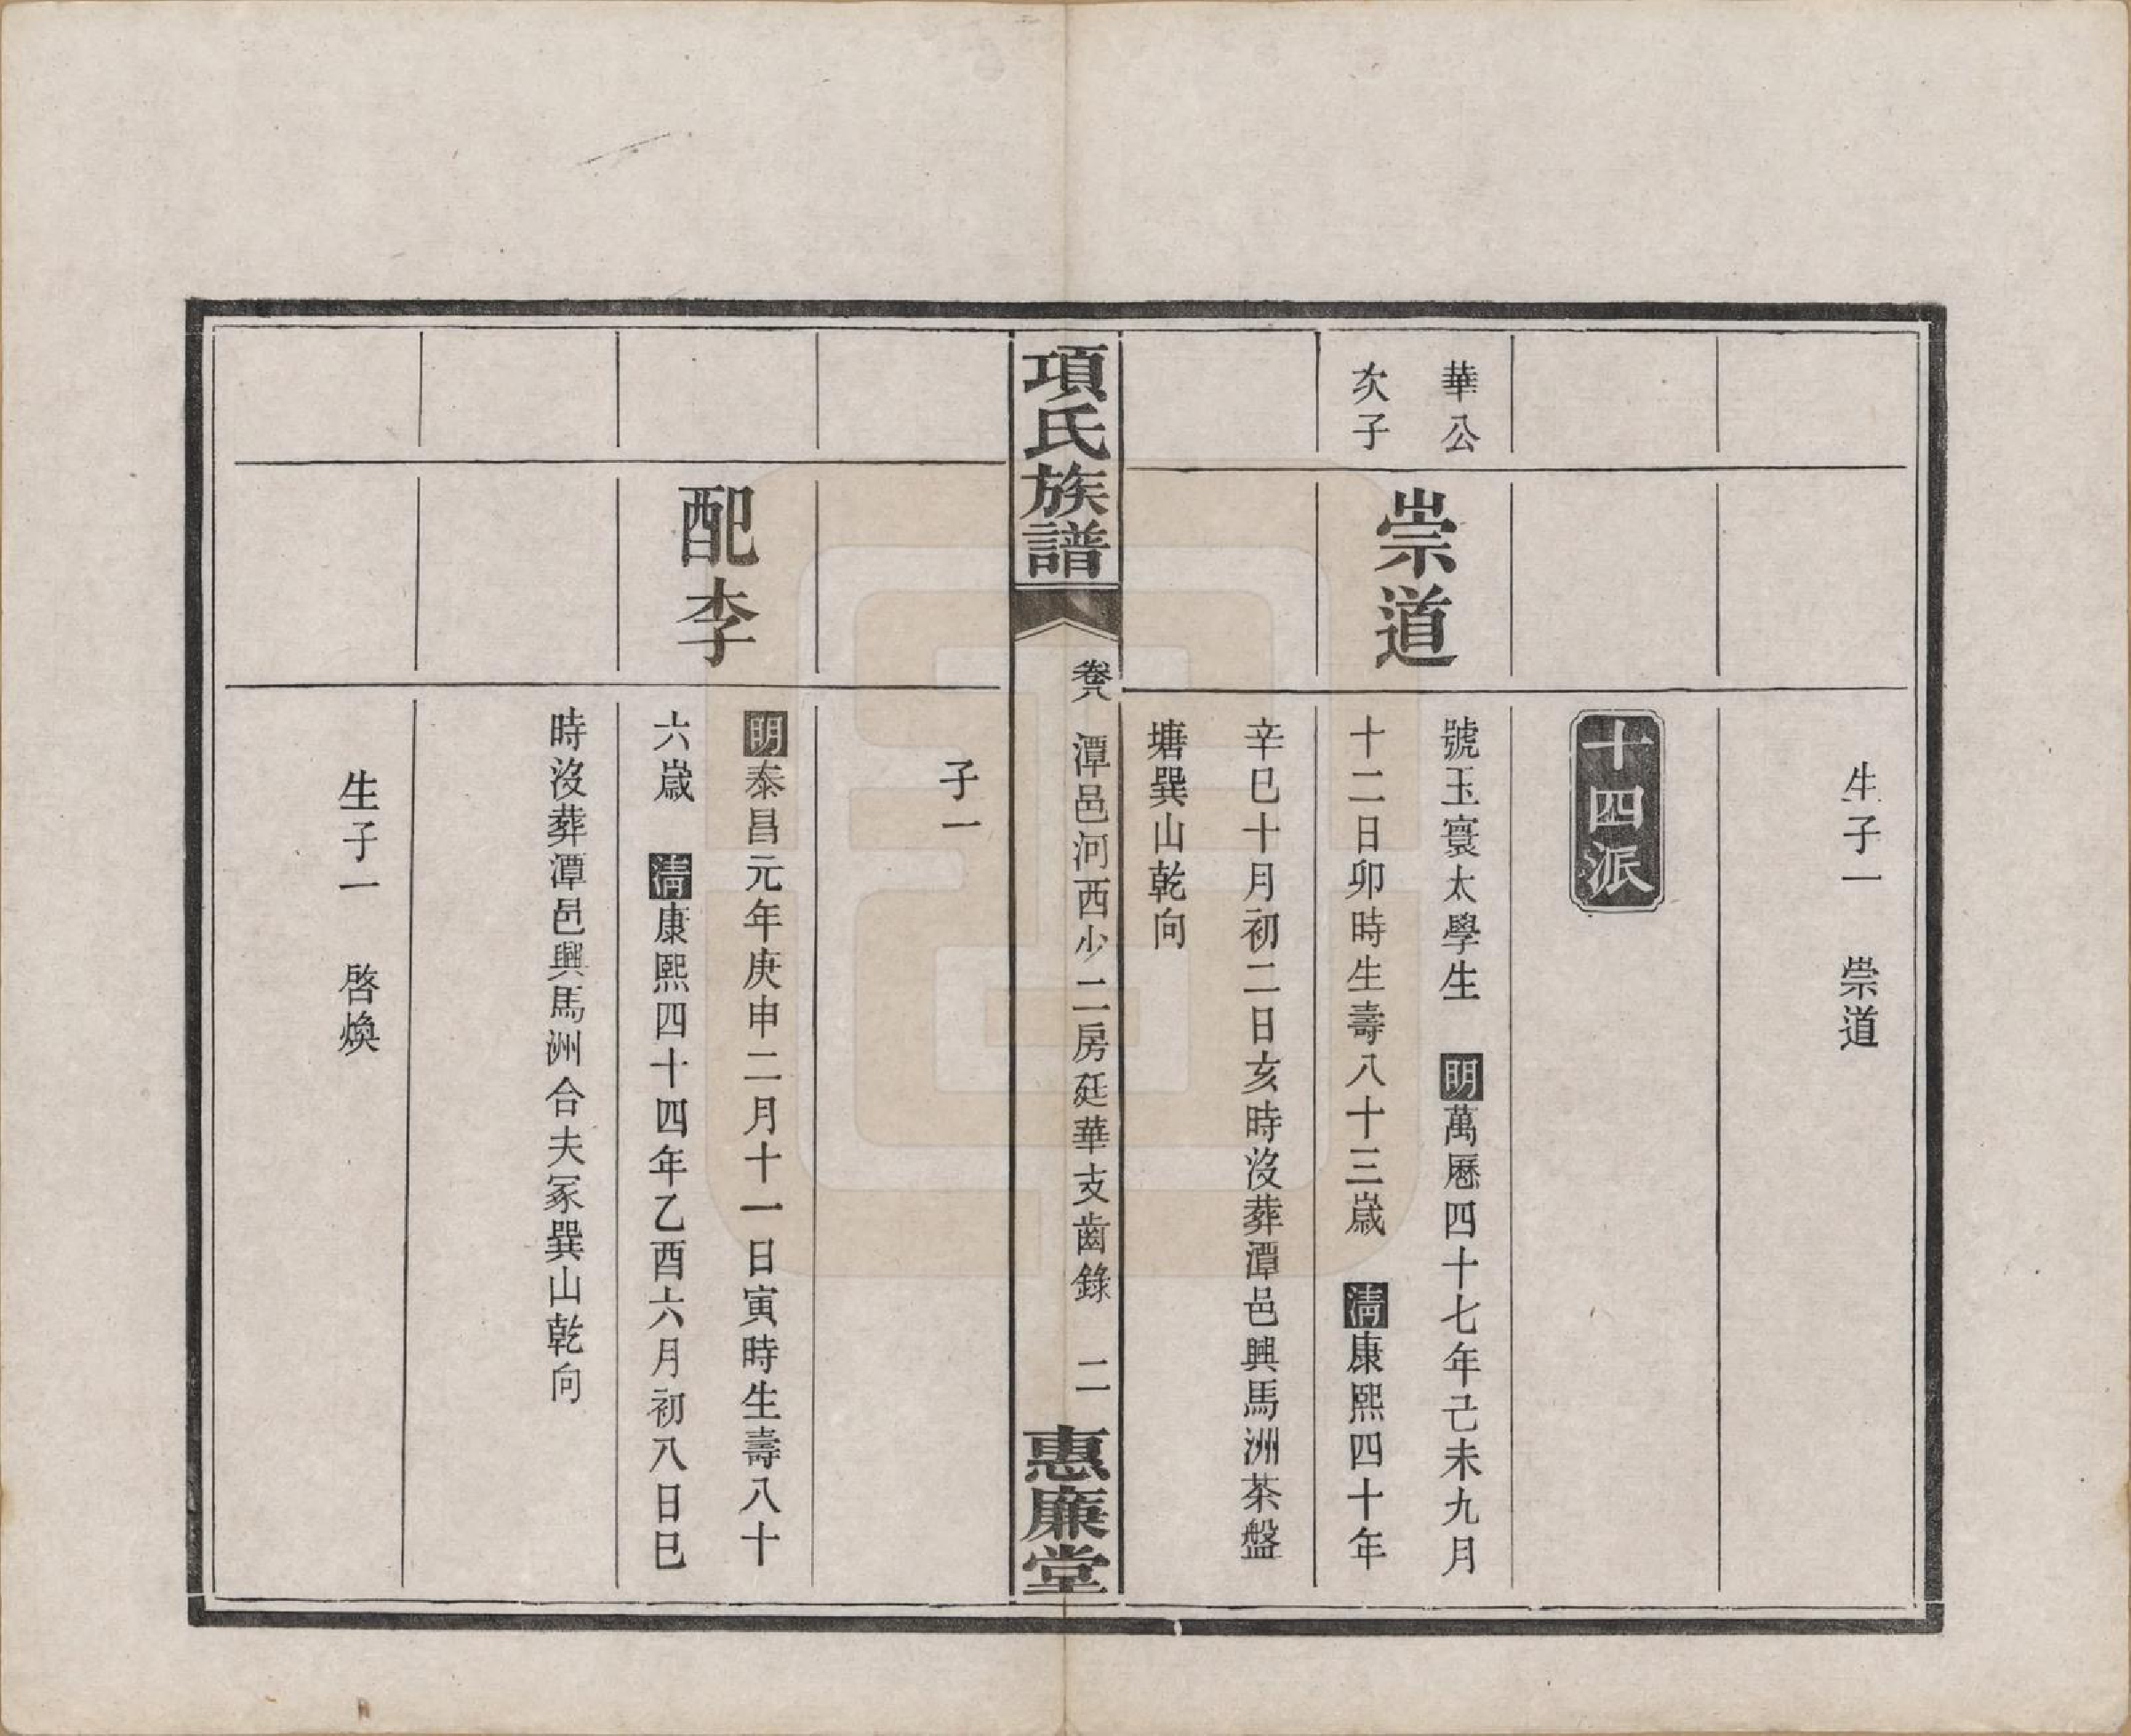 生子一　崇道
十四派
華公
次子
崇道
號玉寰太學生　明萬曆四十七年己未九月
十二日卯時生壽八十三歲　清康熙四十年
辛巳十月初二日亥時沒葬潭邑興馬洲茶盤
塘巽山乾向
項氏族譜
卷八
潭邑河西少二房廷華支齒錄　二
惠廉堂
子一
配李
明泰昌元年庚申二月十一日寅時生壽八十
六歲　清康熙四十四年乙酉六月初八日巳
時沒葬潭邑興馬洲合夫冢巽山乾向
生子一　啓煥